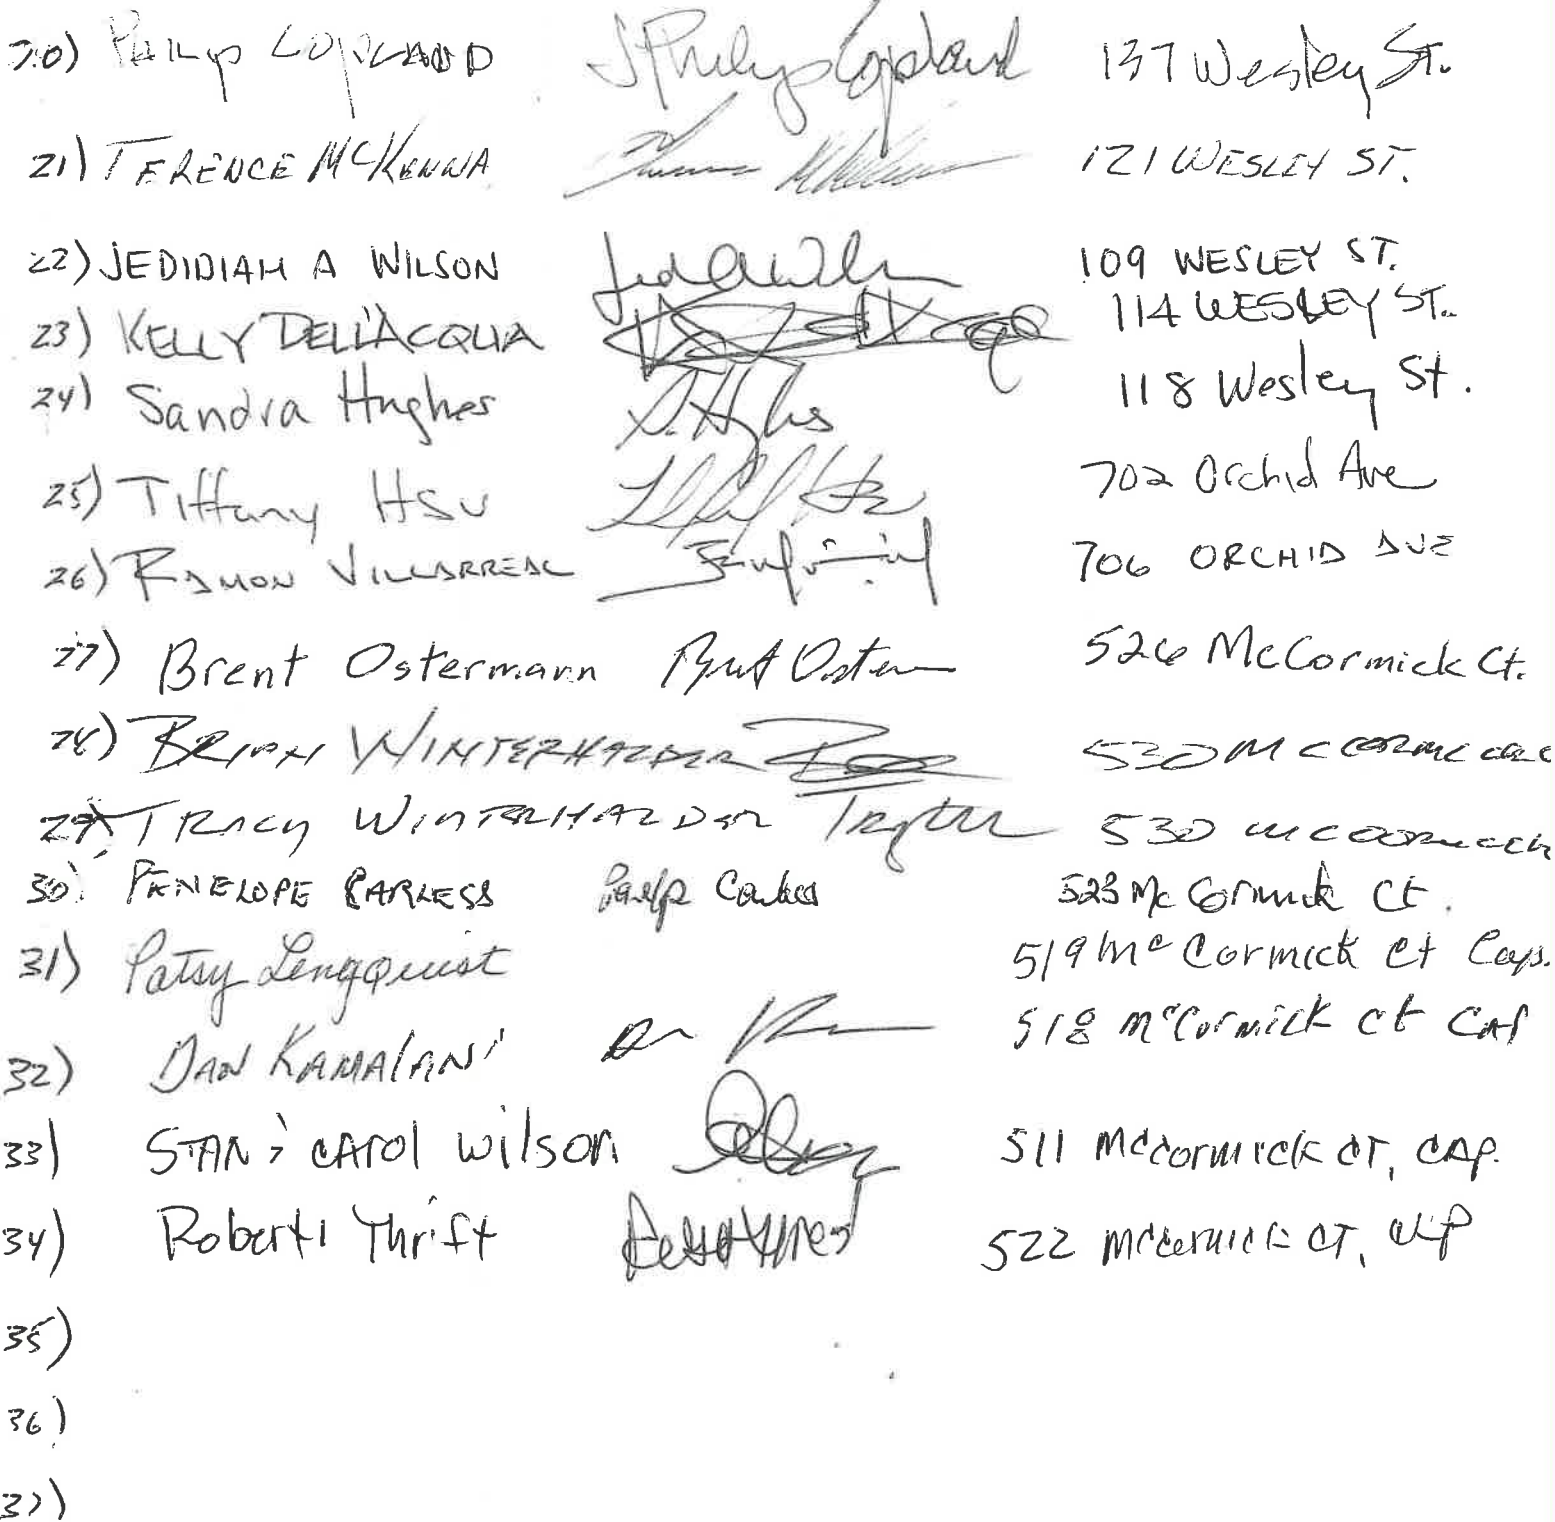 20) Philip Copeland J Philip Copeland 137 Wesley St.
21) TERENCE MCKENNA 121 WESLEY ST.
22) JEDIDIAH A WILSON 109 WESLEY ST.
23) KELLY DELL'ACQUA 114 WESLEY ST.
24) Sandra Hughes S. Hughes 118 Wesley St.
25) Tiffany Hsu 702 Orchid Ave
26) RAMON VILLARREAL 706 ORCHID AVE
27) Brent Ostermann 526 McCormick Ct.
28) BRIAN WINTERHALDER 530 McCormick
29) TRACY WINTERHALDER 530 McCormick
30) PENELOPE CARLESS 523 McCormick Ct.
31) Patsy Lengquist 519 McCormick Ct Cap.
32) DAN KAMALANI 518 McCormick Ct CAP
33) STAN & CAROL Wilson 511 McCormick CT, CAP.
34) Roberti Thrift 522 McCormick CT, CAP
35)
36)
37)